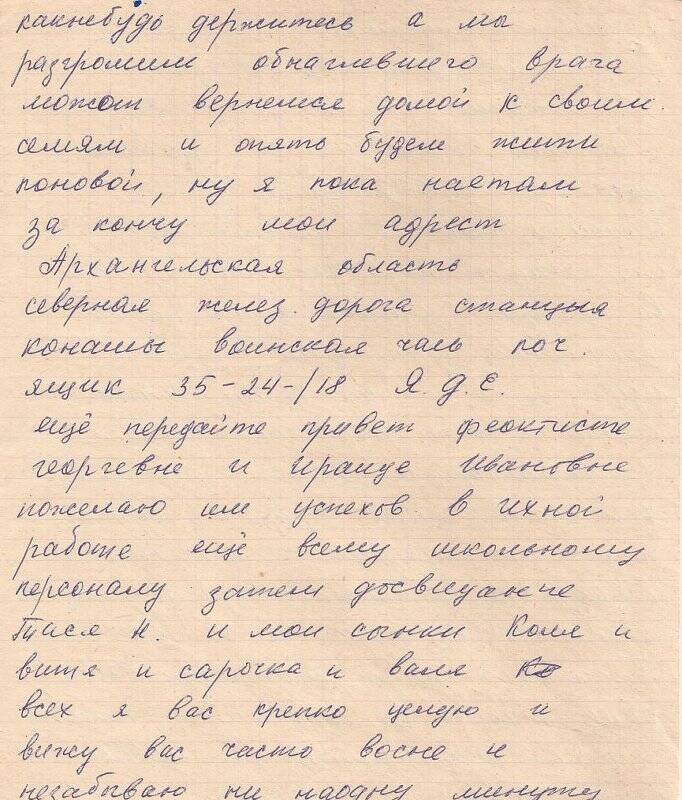 какнебудь держитесь а мы
разгромим обнаглевшего врага
можот вернемся домой к своим
семям и опять будем жити
поновой, ну я пока наетам
за кончу мои адрест
Архангельская область
северная желез. дорога станцыя
конашы воинская часть поч.
ящик 35-24-/18 Я.Д.Е.
ещё передайте привет феоктисте
георгевне и ираиде Ивановне
пожелаю им успехов в ихной
работе ещё всему школьному
персоналу затем досвиданье
Тася Н. и мои сынки Коля и
витя и сарочка и валя
всех я вас крепко целую и
вижу вас часто восне и
незабываю ни наодну минуту